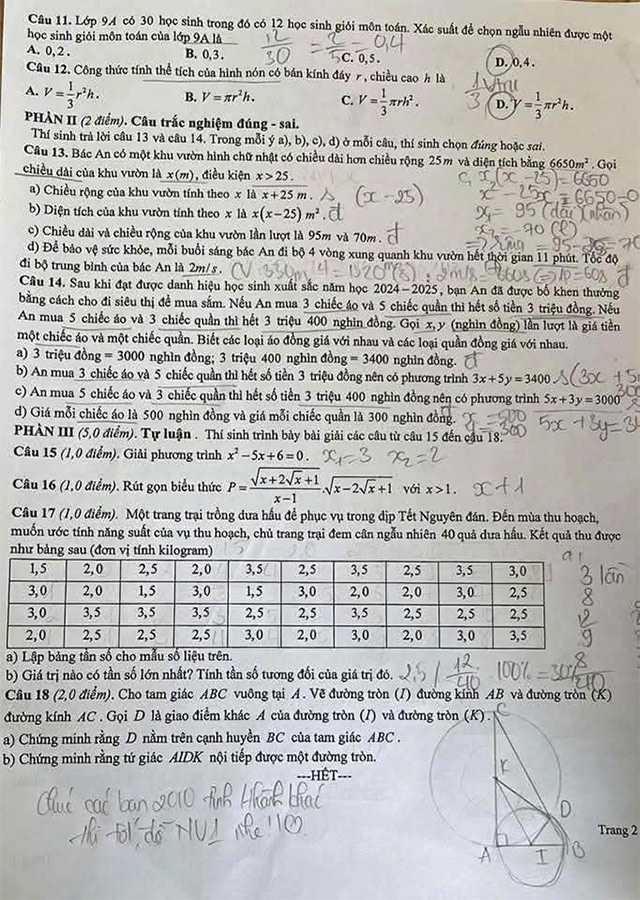 Câu 11. Lớp 9A có 30 học sinh trong đó có 12 học sinh giỏi môn toán. Xác suất để chọn ngẫu nhiên được một
học sinh giỏi môn toán của lớp 9A là 12/30 = 2/5 = 0,4
A. 0,2. B. 0,3. C. 0,5. D. 0,4.
Câu 12. Công thức tính thể tích của hình nón có bán kính đáy r, chiều cao h là
A. V = 1/3 r²h. B. V = πr²h. C. V = 1/3 πrh². D. V = 1/3 πr²h.
PHẦN II (2 điểm). Câu trắc nghiệm đúng - sai.
Thí sinh trả lời câu 13 và câu 14. Trong mỗi ý a), b), c), d) ở mỗi câu, thí sinh chọn đúng hoặc sai.
Câu 13. Bác An có một khu vườn hình chữ nhật có chiều dài hơn chiều rộng 25m và diện tích bằng 6650m². Gọi
chiều dài của khu vườn là x(m), điều kiện x > 25. c, x(x-25) = 6650
a) Chiều rộng của khu vườn tính theo x là x + 25 m. s (x-25) x² - 25x - 6650 = 0
b) Diện tích của khu vườn tính theo x là x(x-25) m². đ x₁ = 95 (dài) (nhận)
c) Chiều dài và chiều rộng của khu vườn lần lượt là 95m và 70m. đ x₂ = -70 (l)
d) Để bảo vệ sức khỏe, mỗi buổi sáng bác An đi bộ 4 vòng xung quanh khu vườn hết thời gian 11 phút. Tốc độ
đi bộ trung bình của bác An là 2m/s.
Câu 14. Sau khi đạt được danh hiệu học sinh xuất sắc năm học 2024-2025, bạn An đã được bố khen thưởng
bằng cách cho đi siêu thị để mua sắm. Nếu An mua 3 chiếc áo và 5 chiếc quần thì hết số tiền 3 triệu đồng. Nếu
An mua 5 chiếc áo và 3 chiếc quần thì hết 3 triệu 400 nghìn đồng. Gọi x, y (nghìn đồng) lần lượt là giá tiền
một chiếc áo và một chiếc quần. Biết các loại áo đồng giá với nhau và các loại quần đồng giá với nhau.
a) 3 triệu đồng = 3000 nghìn đồng; 3 triệu 400 nghìn đồng = 3400 nghìn đồng. đ
b) An mua 3 chiếc áo và 5 chiếc quần thì hết số tiền 3 triệu đồng nên có phương trình 3x + 5y = 3400 s
c) An mua 5 chiếc áo và 3 chiếc quần thì hết số tiền 3 triệu 400 nghìn đồng nên có phương trình 5x + 3y = 3000
d) Giá mỗi chiếc áo là 500 nghìn đồng và giá mỗi chiếc quần là 300 nghìn đồng. đ x = 500 y = 300
PHẦN III (5,0 điểm). Tự luận . Thí sinh trình bày bài giải các câu từ câu 15 đến câu 18.
Câu 15 (1,0 điểm). Giải phương trình x² - 5x + 6 = 0. x₁ = 3 x₂ = 2
Câu 16 (1,0 điểm). Rút gọn biểu thức P = √(x + 2√x + 1)/(x - 1) . √(x - 2√x + 1) với x > 1. x + 1
Câu 17 (1,0 điểm). Một trang trại trồng dưa hấu để phục vụ trong dịp Tết Nguyên đán. Đến mùa thu hoạch,
muốn ước tính năng suất của vụ thu hoạch, chủ trang trại đem cân ngẫu nhiên 40 quả dưa hấu. Kết quả thu được
như bảng sau (đơn vị tính kilogram)
1,5 2,0 2,5 2,0 3,5 2,5 3,5 2,5 3,5 3,0 3 lần
3,0 2,0 1,5 3,0 1,5 3,0 2,0 2,0 3,0 2,5 8
3,0 3,5 3,5 3,5 2,5 2,5 3,5 2,5 2,5 2,5 12
2,0 2,5 2,5 2,5 3,0 2,0 3,0 2,0 3,0 3,5 9
a) Lập bảng tần số cho mẫu số liệu trên. 8
b) Giá trị nào có tần số lớn nhất? Tính tần số tương đối của giá trị đó. 2,5 / 12/40 . 100% = 30%
Câu 18 (2,0 điểm). Cho tam giác ABC vuông tại A. Vẽ đường tròn (I) đường kính AB và đường tròn (K)
đường kính AC. Gọi D là giao điểm khác A của đường tròn (I) và đường tròn (K).
a) Chứng minh rằng D nằm trên cạnh huyền BC của tam giác ABC.
b) Chứng minh rằng tứ giác AIDK nội tiếp được một đường tròn.
---HẾT---
Chúc các bạn 2010 tỉnh
thi tốt, đỗ NV1 nhé !!
C
K
D
A I B
Trang 2